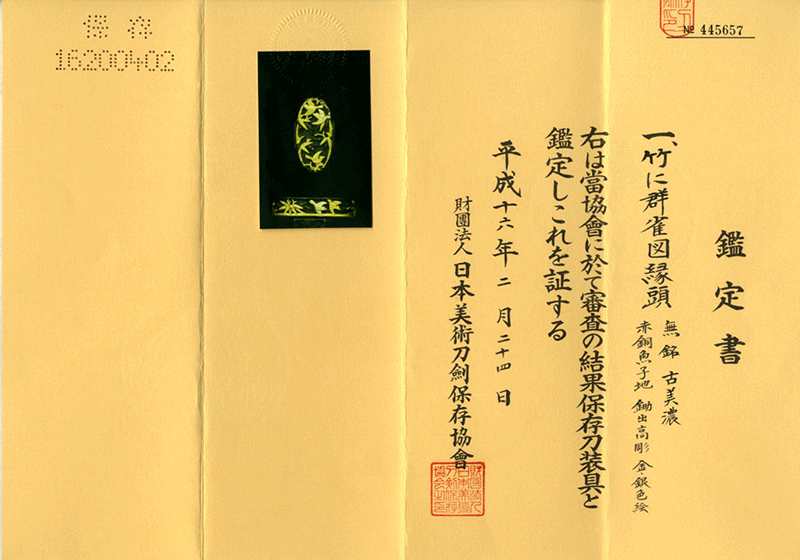 № 445657
鑑定書
一、竹に群雀図縁頭
無銘 古美濃
赤銅魚子地 鋤出高彫 金・銀色絵
右は當協會に於て審査の結果保存刀装具と
鑑定しこれを証する
平成十六年二月二十四日
財團法人 日本美術刀劍保存協會
保存
16200402